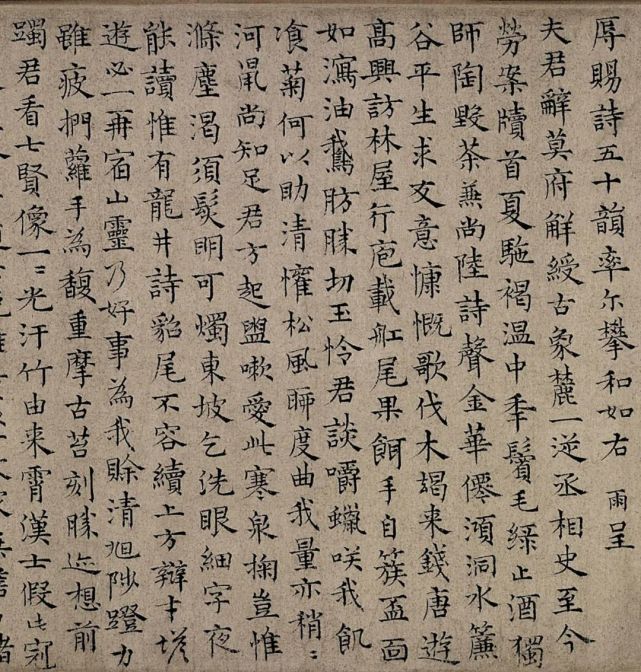 辱賜詩五十韻率尔攀和如右 雨呈
夫君辭莫府解綬古象麓一逆丞相史至今
勞案牘首夏駞褐温中秊鬢毛緑止酒獨
師陶毀茶兼尚陸詩聲金華僊澒洞水簾
谷平生求友意慷慨歌伐木朅来錢唐遊
髙興訪林屋行庖載舡尾果餌手自簇盃面
如瀉油鵞肪勝切玉怜君談嚼蠟咲我飢
飡菊何以助清懽松風聊度曲我量亦稍〻
河鼠尚知足君方起盥嗽愛此寒泉掬豈惟
滌塵渴須髮明可燭東坡乞洗眼細字夜
能讀惟有龍井詩貂尾不容續上方辯才塔
遊必一再宿山靈乃好事為我賒清旭陟蹬力
雖疲捫蘿手為馥重摩古苔刻勝迹想前
躅君看七賢像一〻光汗竹由来霄漢士假此冠